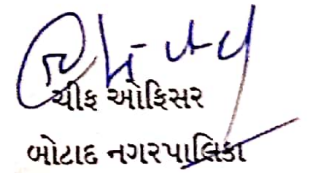 ચીફ ઓફિસર
બોટાદ નગરપાલિકા